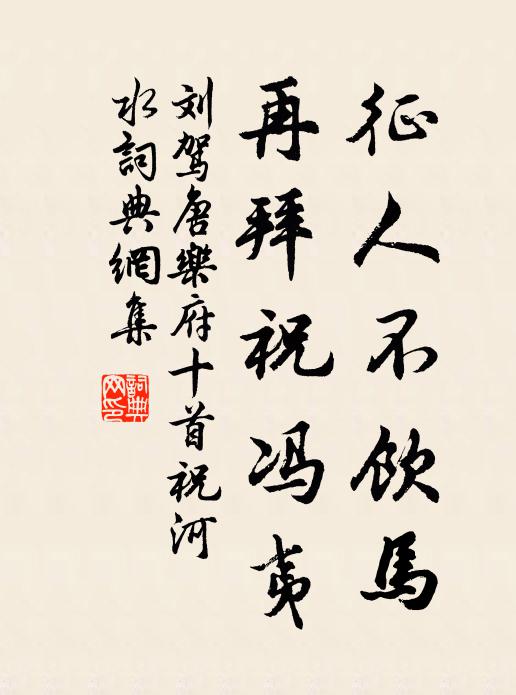 征人不饮馬
再拜祝冯夷
刘驾唐樂府十首祝河
水詞典網集
詞典
网印